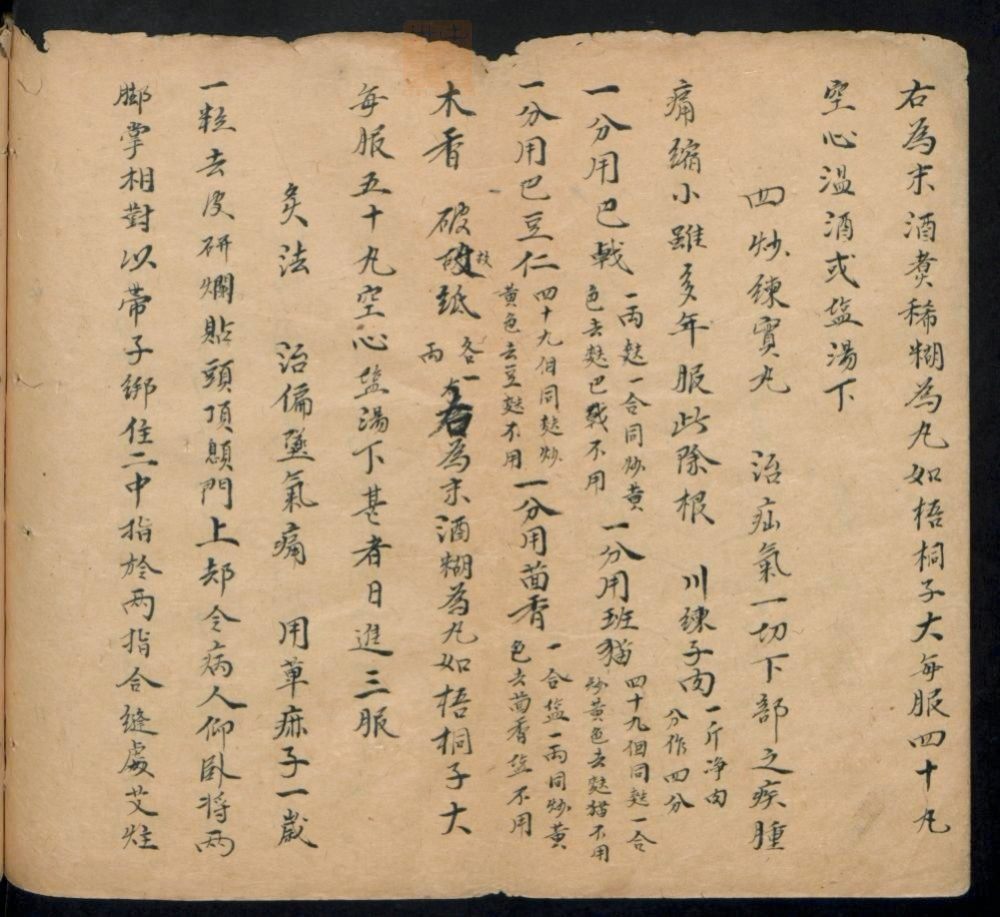 右為末酒煮稀糊為丸如梧桐子大每服四十丸
空心温酒或盐湯下
四炒練實丸　治疝氣一切下部之疾腫
痛縮小雖多年服此除根　川練子肉一斤净肉分作四分
一分用巴戟一两麩一合同炒黄色去麩巴戟不用一分用班猫四十九個同麩一合炒黄色去麩猫不用
一分用巴豆仁四十九個同麩炒黄色去豆麩不用一分用茴香一合盐一两同炒黄色去茴香盐不用
木香　破故紙各一两右為末酒糊為丸如梧桐子大
每服五十丸空心盐湯下甚者日進三服
灸法　治偏墜氣痛　用草麻子一歲
一粒去皮研爛貼頭頂顖門上却令病人仰卧将两
脚掌相對以帶子綁住二中指於两指合縫處艾炷